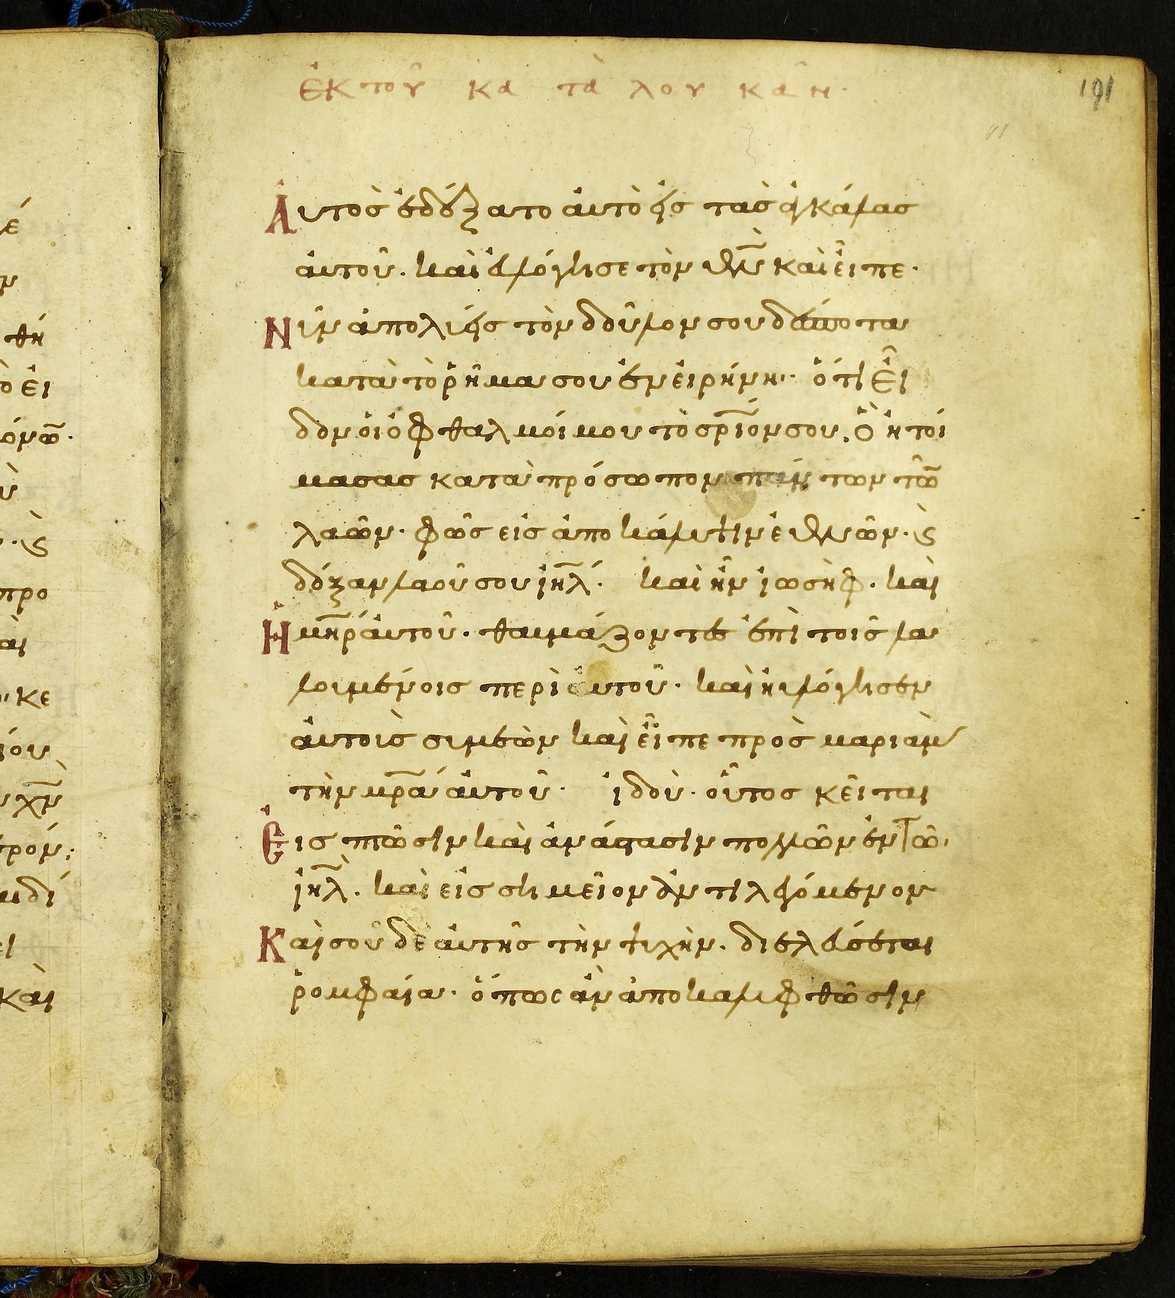 ἐκ τοῦ κα τὰ λουκᾶν·
191
Αὐτὸς ἐδέξατο αὐτὸ εἰς τὰς ἀγκάλας
αὐτοῦ. καὶ εὐλόγησε τὸν θν̅ καὶ εἶπε·
Νῦν ἀπολύεις τὸν δοῦλον σου δέσποτα
κατὰ τὸ ῥῆμα σου ἐν εἰρήνη· ὅτι εἶ
δον οἱ ὀφθαλμοί μου τὸ σρ̅ιόν σου. ὃ ἡτοί
μασας κατὰ πρόσωπον πάντων τῶν
λαῶν· φῶς εἰς ἀποκάλυψιν ἐθνῶν· ϗ
δόξαν λαοῦ σου ιη̅λ. καὶ ἦν ἰωσὴφ. καὶ
Ἡ μη̅ρ αὐτοῦ. θαυμάζοντες ἐπὶ τοῖς λα
λουμένοις περὶ αὐτοῦ· καὶ ηὐλόγησεν
αὐτοὺς συμεὼν καὶ εἶπε πρὸς μαριὰμ
τὴν μρ̅α αὐτοῦ· ἰδοὺ· οὗτος κεῖται
Εἰς πτῶσιν καὶ ἀνάστασιν πολλῶν ἐν τῶ
ιη̅λ. καὶ εἰς σημεῖον ἀντιλεγόμενον
Καὶ σοῦ δὲ αὐτῆς τὴν ψυχὴν. διελεύσεται
ῥομφαία· ὅπως ἂν ἀποκαλυφθῶσιν